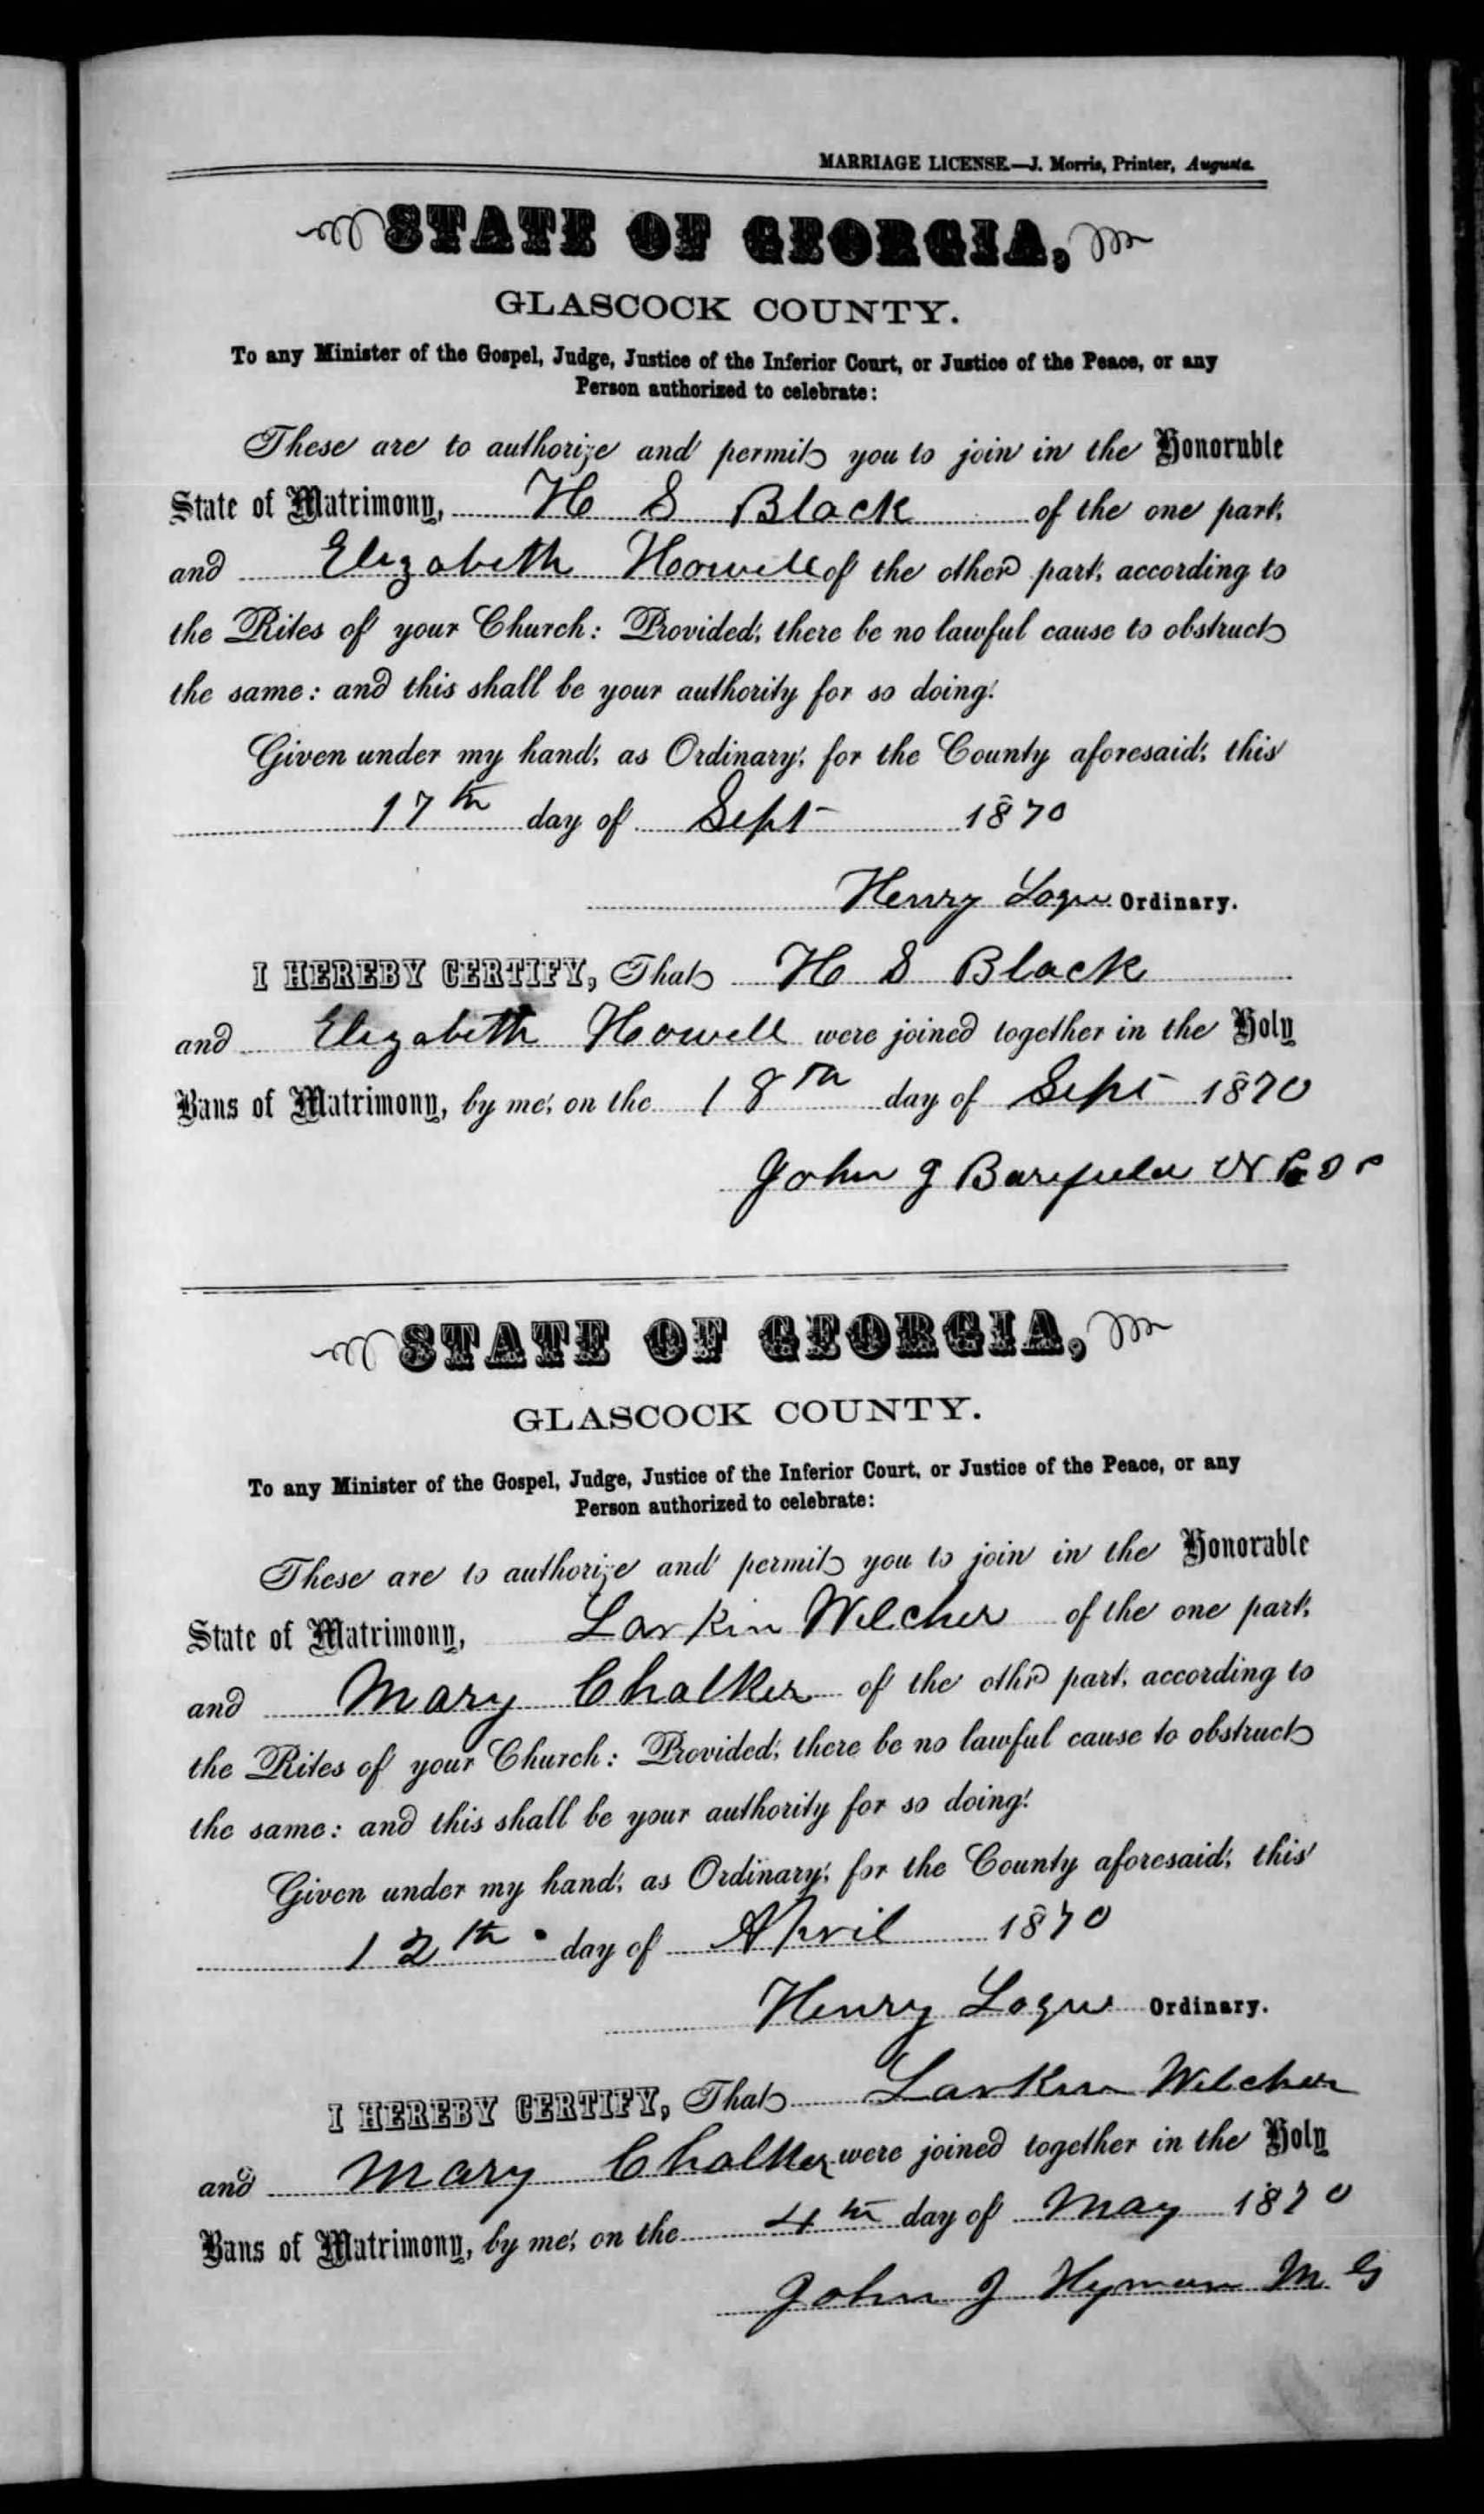 MARRIAGE LICENSE.—J. Morris, Printer, Augusta.
STATE OF GEORGIA,
GLASCOCK COUNTY.
To any Minister of the Gospel, Judge, Justice of the Inferior Court, or Justice of the Peace, or any
Person authorized to celebrate:
These are to authorize and permit you to join in the Honorable
State of Matrimony, H S Black of the one part,
and Elizabeth Howell of the other part, according to
the Rites of your Church: Provided, there be no lawful cause to obstruct
the same: and this shall be your authority for so doing.
Given under my hand, as Ordinary, for the County aforesaid, this
17th day of Sept 1870
Henry Logue Ordinary.
I HEREBY CERTIFY, That H S Black
and Elizabeth Howell were joined together in the Holy
Bans of Matrimony, by me, on the 18th day of Sept 1870
John J Barefield
STATE OF GEORGIA,
GLASCOCK COUNTY.
To any Minister of the Gospel, Judge, Justice of the Inferior Court, or Justice of the Peace, or any
Person authorized to celebrate:
These are to authorize and permit you to join in the Honorable
State of Matrimony, Larkin Wilcher of the one part,
and Mary Chalker of the other part, according to
the Rites of your Church: Provided, there be no lawful cause to obstruct
the same: and this shall be your authority for so doing.
Given under my hand, as Ordinary, for the County aforesaid, this
12th day of April 1870
Henry Logue Ordinary.
I HEREBY CERTIFY, That Larkin Wilcher
and Mary Chalker were joined together in the Holy
Bans of Matrimony, by me, on the 4th day of May 1870
John J Hyman M G